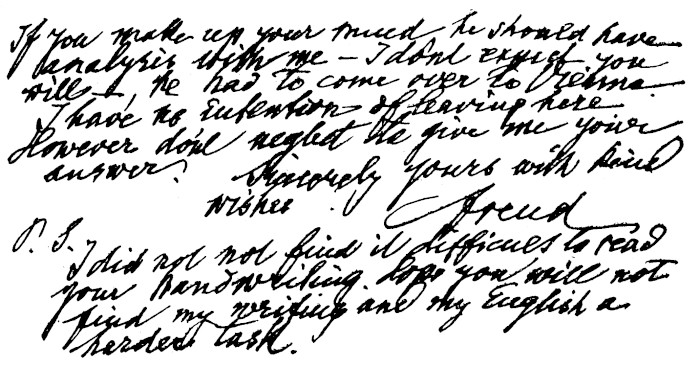 If you make up your mind he should have
analysis with me – I dont expect you
will –, he had to come over to Vienna.
I have no intention of leaving here.
However dont neglect to give me your
answer.
Sincerely yours with kind
wishes
Freud
P. S.
I did not not find it difficult to read
your handwriting. Hope you will not
find my writing and my English a
harder task.